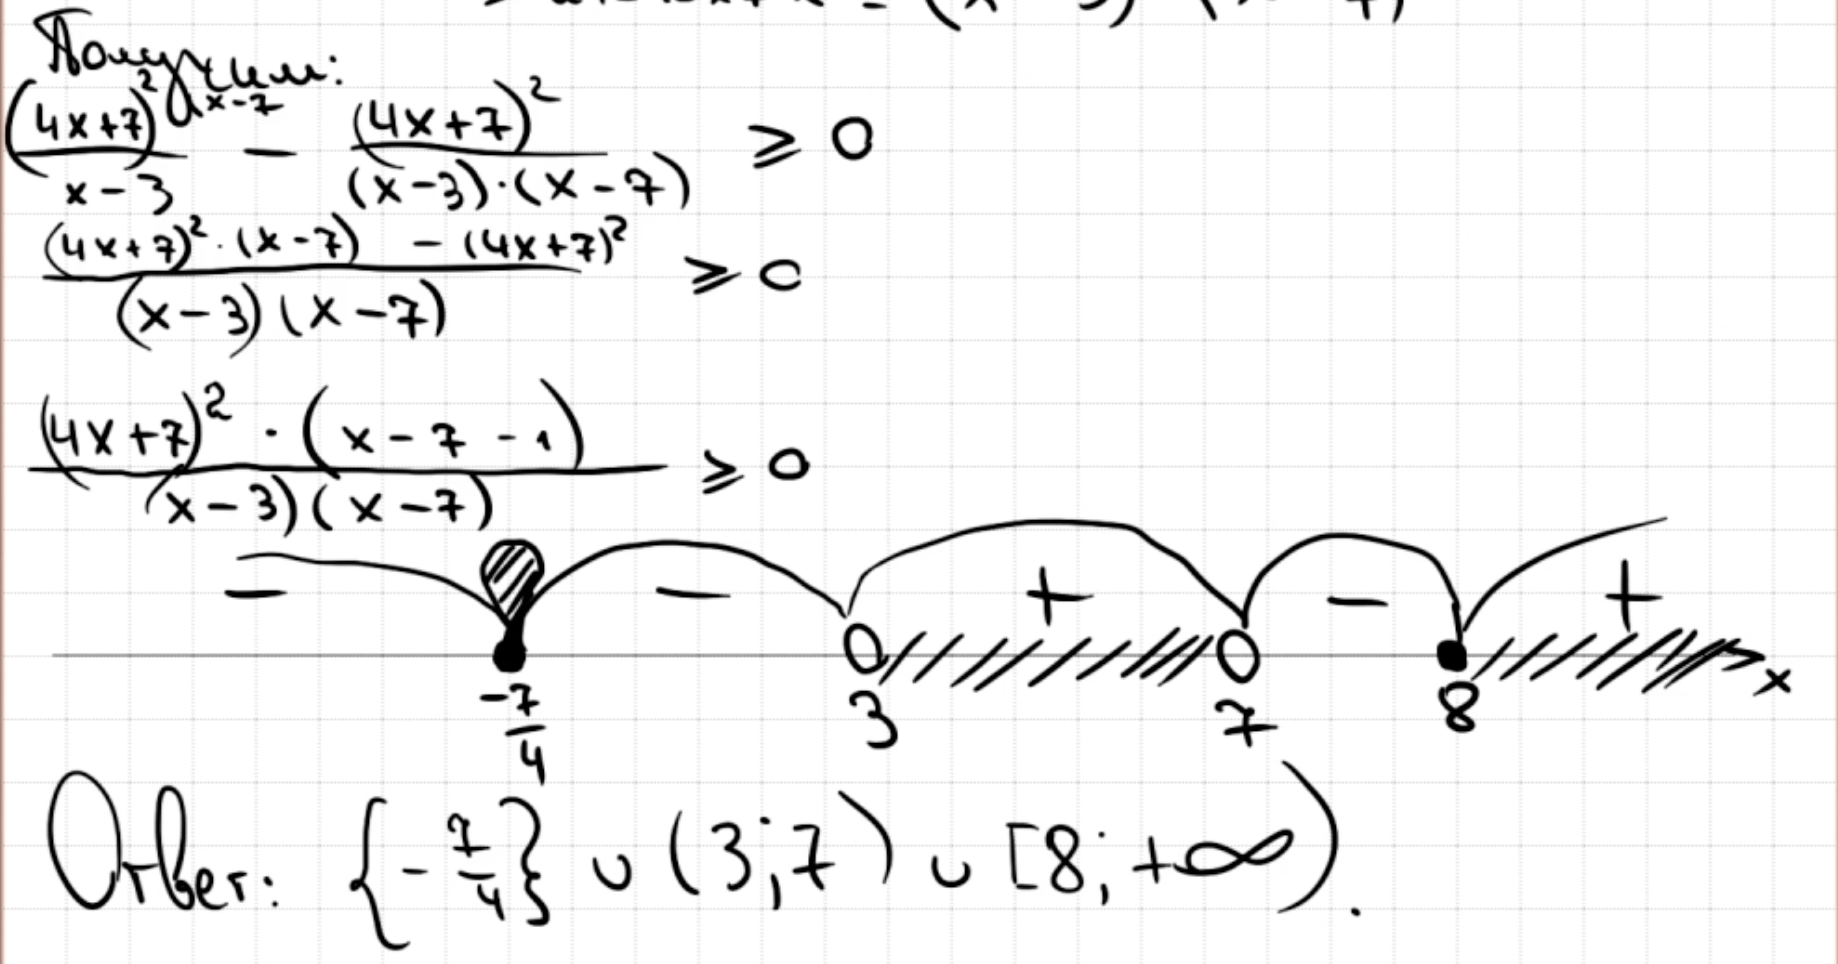 Получим:
(4x+7)² ^(x-7) / (x-3) - (4x+7)² / ((x-3)·(x-7)) ⩾ 0
((4x+7)²·(x-7) - (4x+7)²) / ((x-3)(x-7)) ⩾ 0
((4x+7)²·(x-7-1)) / ((x-3)(x-7)) ⩾ 0
- - + - +
-7/4 3 7 8 x
Ответ: {-7/4} ∪ (3;7) ∪ [8;+∞).